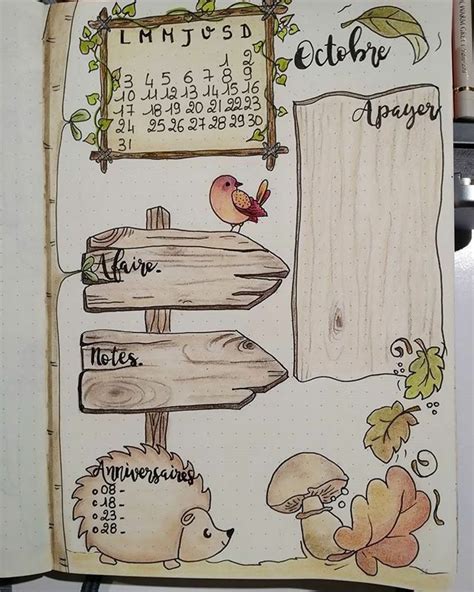 L M M J V S D
1 2
3 4 5 6 7 8 9
10 11 12 13 14 15 16
17 18 19 20 21 22 23
24 25 26 27 28 29 30
31
Octobre
A payer
A faire.
Notes.
Anniversaires
08 -
18 -
23 -
28 -